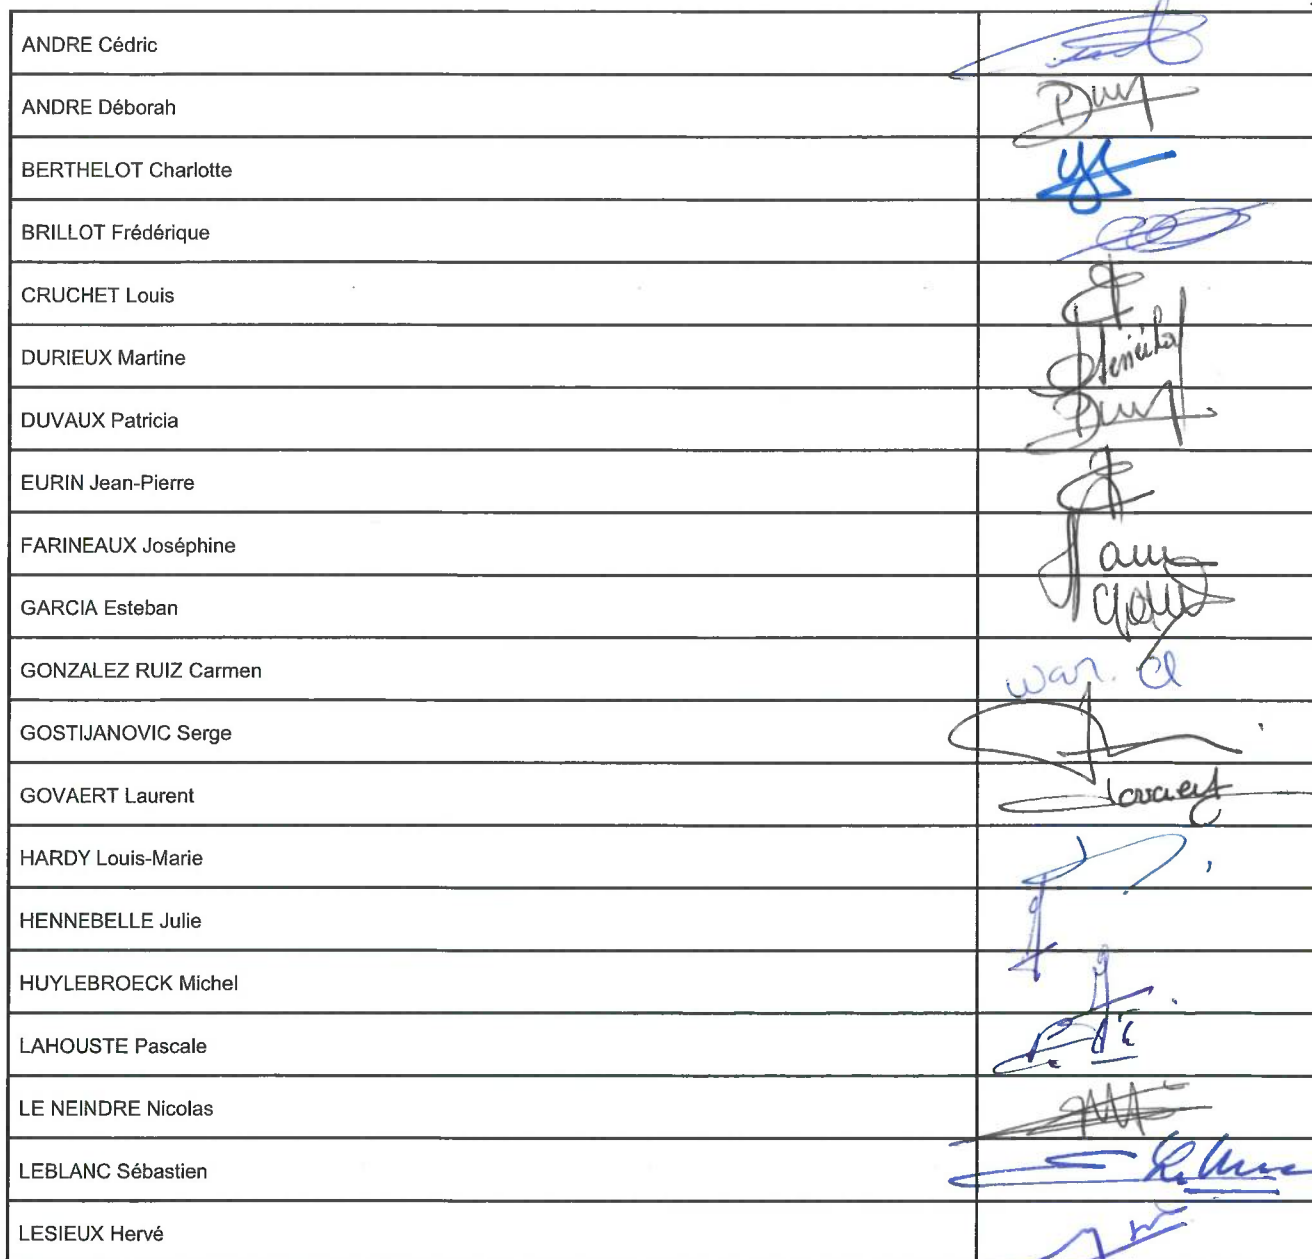 ANDRE Cédric
ANDRE Déborah
BERTHELOT Charlotte
BRILLOT Frédérique
CRUCHET Louis
DURIEUX Martine
DUVAUX Patricia
EURIN Jean-Pierre
FARINEAUX Joséphine
GARCIA Esteban
GONZALEZ RUIZ Carmen
GOSTIJANOVIC Serge
GOVAERT Laurent
HARDY Louis-Marie
HENNEBELLE Julie
HUYLEBROECK Michel
LAHOUSTE Pascale
LE NEINDRE Nicolas
LEBLANC Sébastien
LESIEUX Hervé